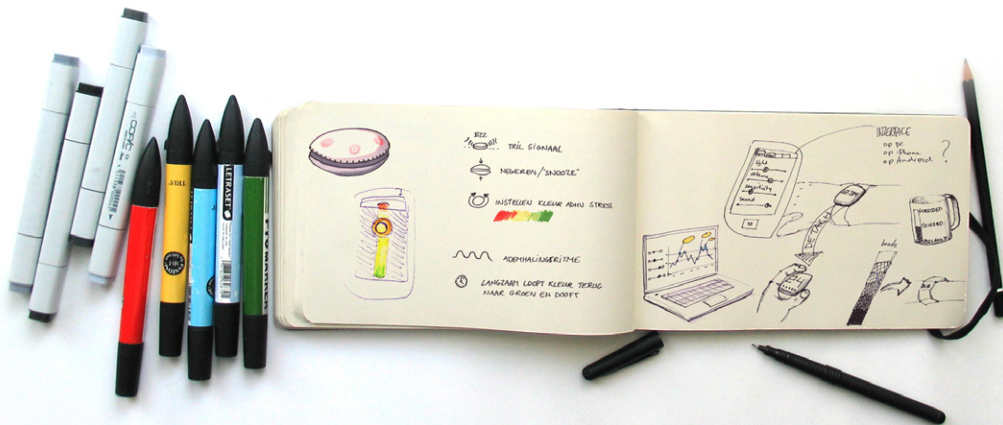 COPIC
TRIA
LETRASET
PROMARKER
BZZ
TRIL SIGNAAL
NEGEREN/"SNOOZE"
INSTELLEN KLEUR ADHV STRESS
ADEMHALINGSRITME
LANGZAAM LOOPT KLEUR TERUG
NAAR GROEN EN DOOFT
INTERFACE
op pc
op iPhone
op Android
?
sound
DETACH
bands